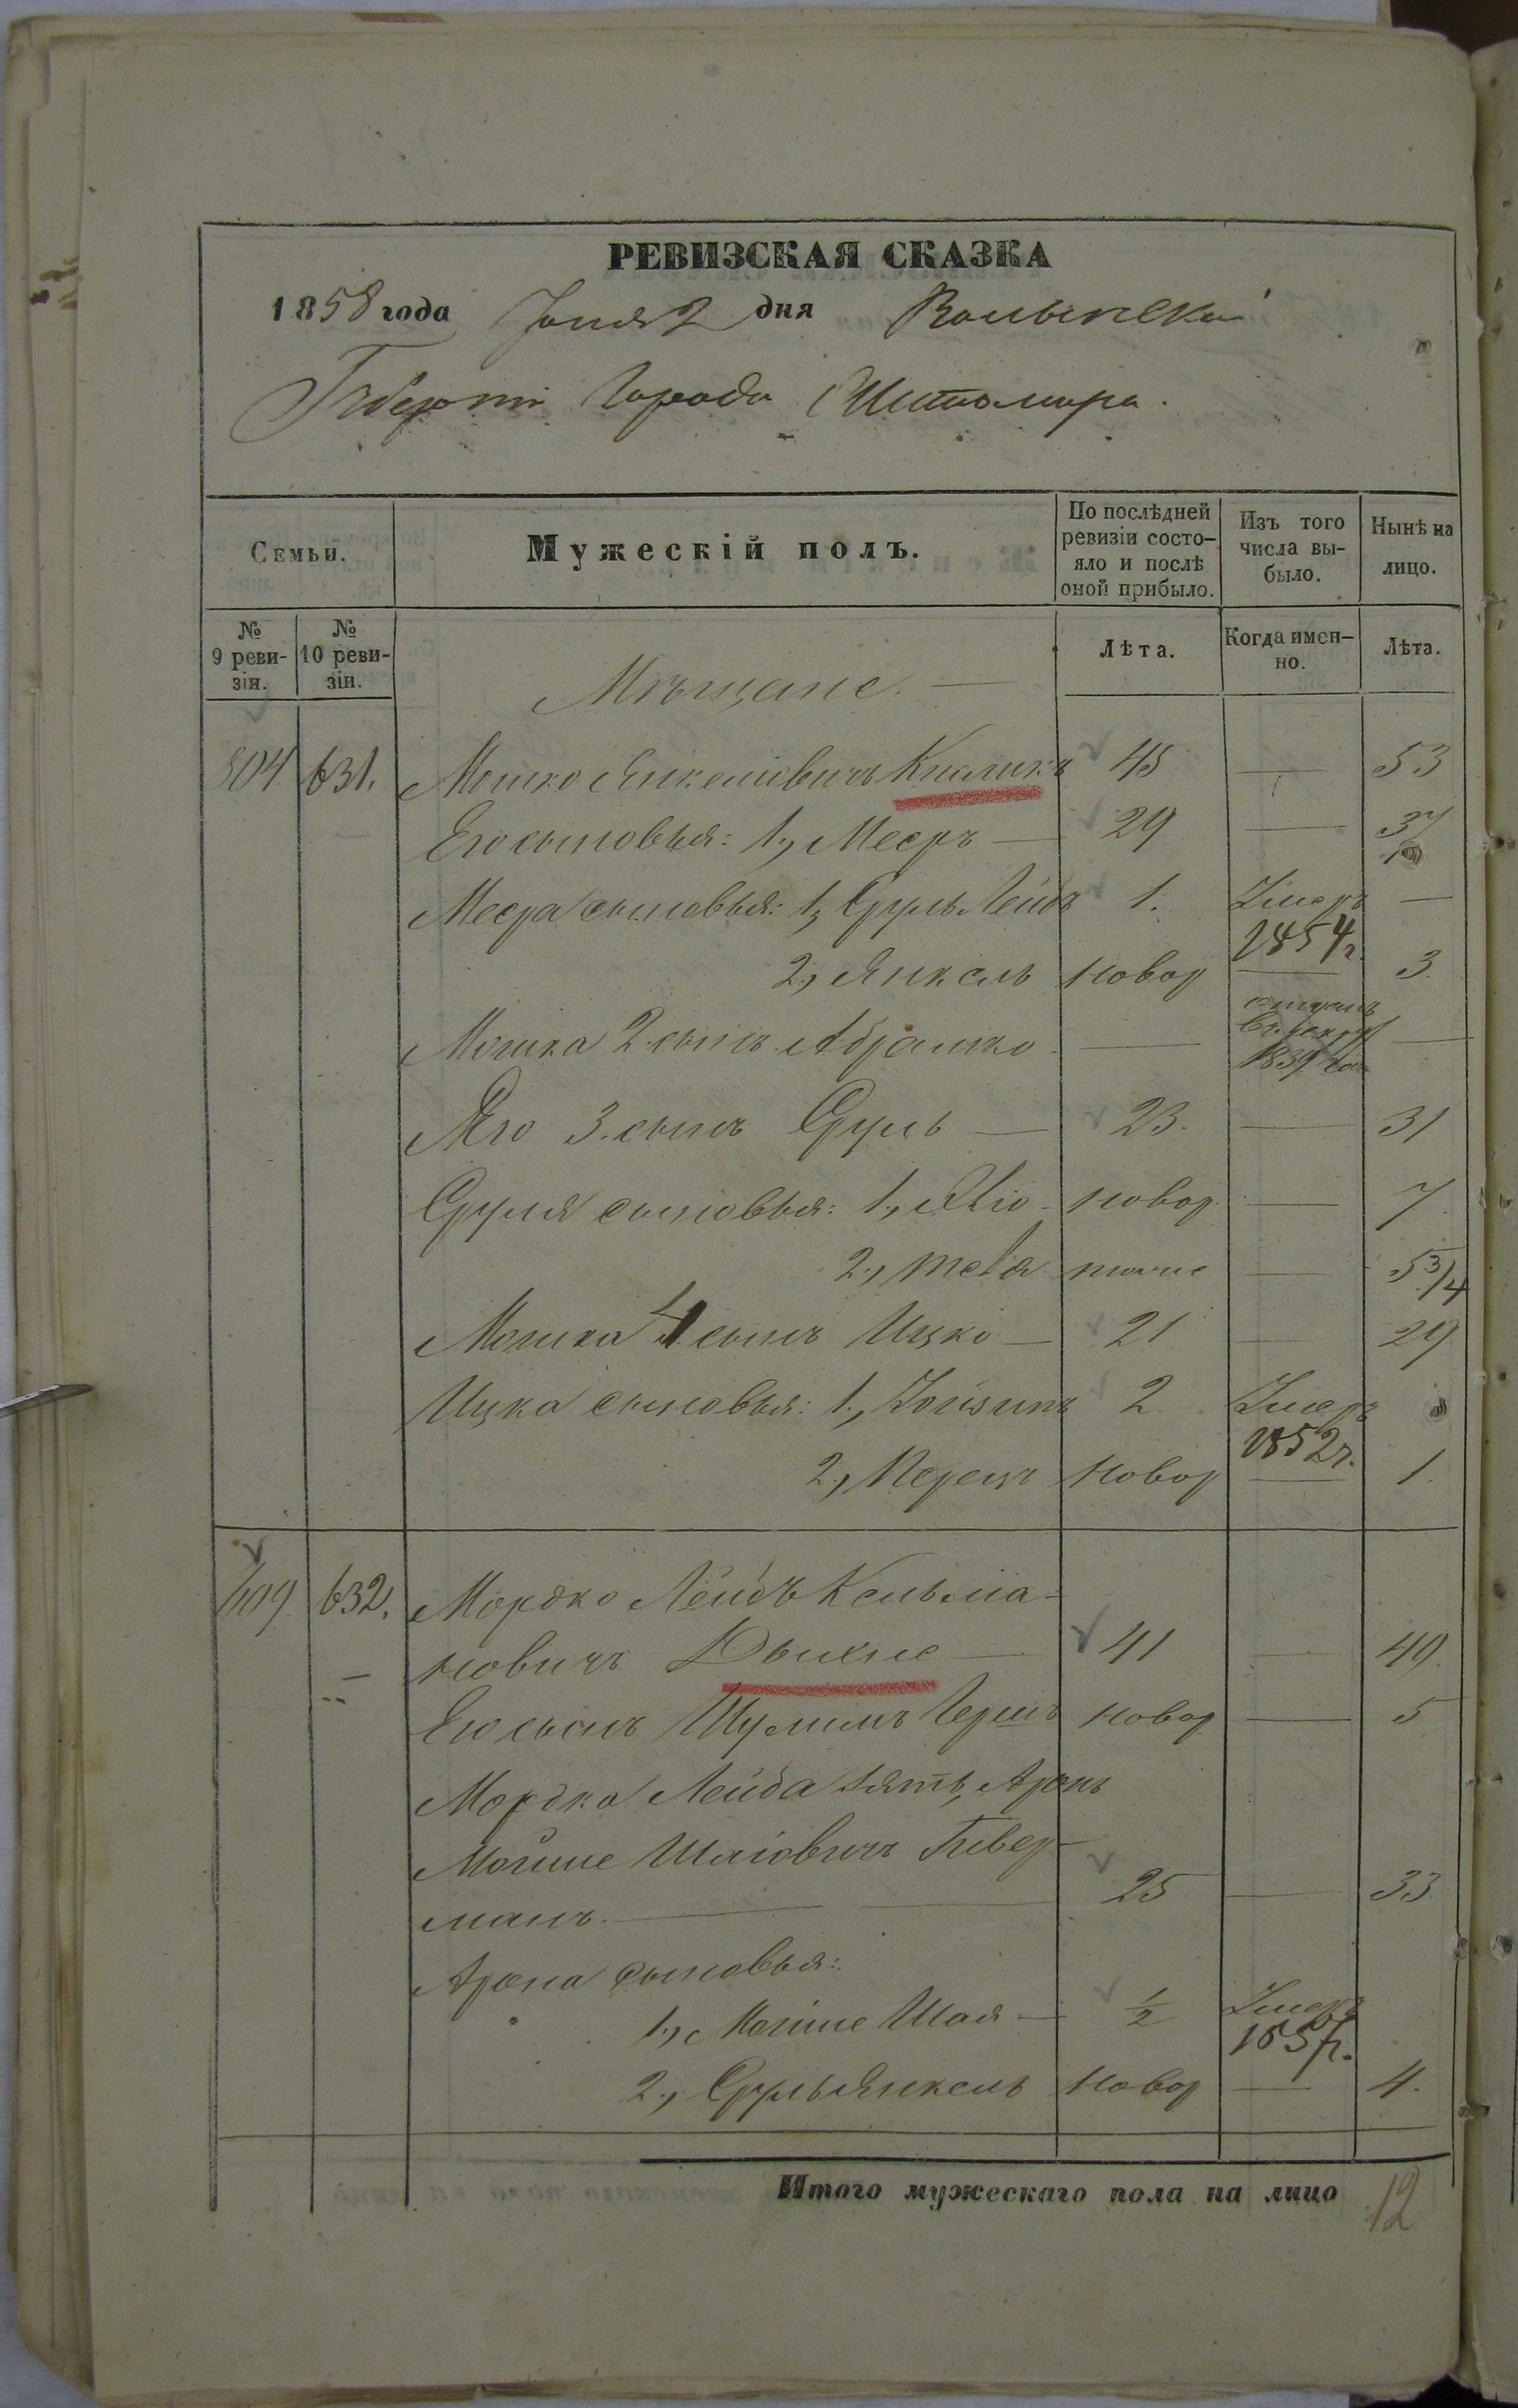 РЕВИЗСКАЯ СКАЗКА
1858 года Іюня 2 дня Волынской
Губерніи Города Житомира.
Семьи.
Мужескій полъ.
По послѣдней ревизіи состо-яло и послѣ оной прибыло.
Изъ того числа вы-было.
Нынѣ на лицо.
№ 9 реви-зіи.
№ 10 реви-зіи.
Лѣта.
Когда имен-но.
Лѣта.
Мѣщане.
304 631. Мошко Янкелiовичъ 45 — 53
Его сыновья: 1., Мееръ — 29 — 37
Меера сыновья: 1., Сруль Лейбъ 1. Умеръ 1854 г. —
2., Янкель новор — 3.
Мошка 2. сынъ Абрамко — 1839 —
Его 3. сынъ Сруль — 23. — 31
Сруля сыновья: 1., новор. — 7.
2., тоже — 5 3/4
Мошка 4 сынъ Ицко — 21 — 29
Ицка сыновья: 1., Зейзикъ 2 Умеръ 1852 г.
2., Перецъ новор — 1.
609. 632. Мордко Лейбъ Кельма-
новичъ 41 — 49.
Его сынъ Шулимъ Гершъ новор — 5
Мордка Лейба зять, Аронъ
Мойше Шаiовичъ Гибер-
манъ. — 25 — 33
Арона сыновья:
1., Мойше Шая — 1/2 Умеръ
2., Сруль Янкель новор — 4.
Итого мужескаго пола на лицо 12